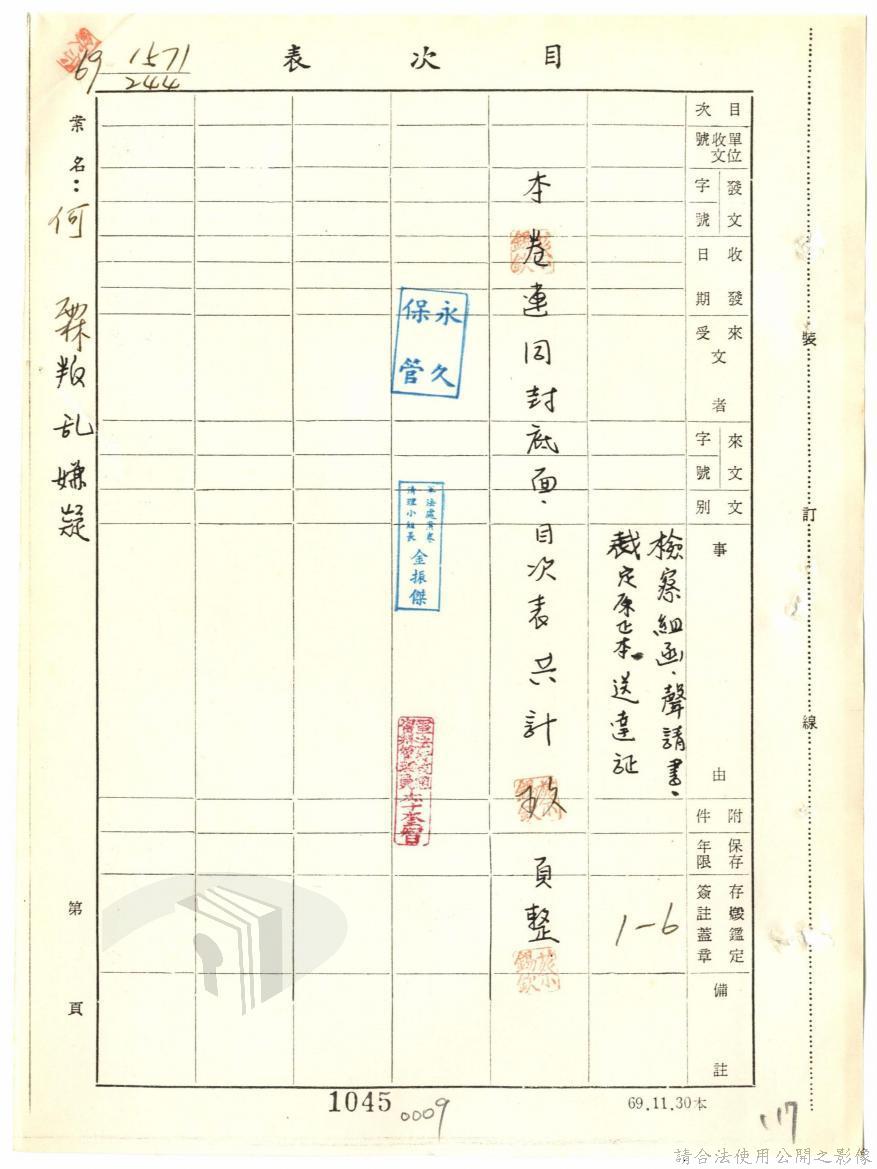 目次表
69 1571/244
目次
單位收文號
發文字號
收發日期
來文受文者
來文字號
文別
事由
附件
保存年限
存燬鑑定簽註蓋章
備註
檢察組函、聲請書、
裁定原正本、送達証
1-6
本卷連同封底面、目次表共計玖頁整
永久保管
軍法處積案
清理小組長
金振傑
案名：何 霖叛乱嫌疑
第 頁
裝訂線
1045
0009
69.11.30本
117
請合法使用公開之影像